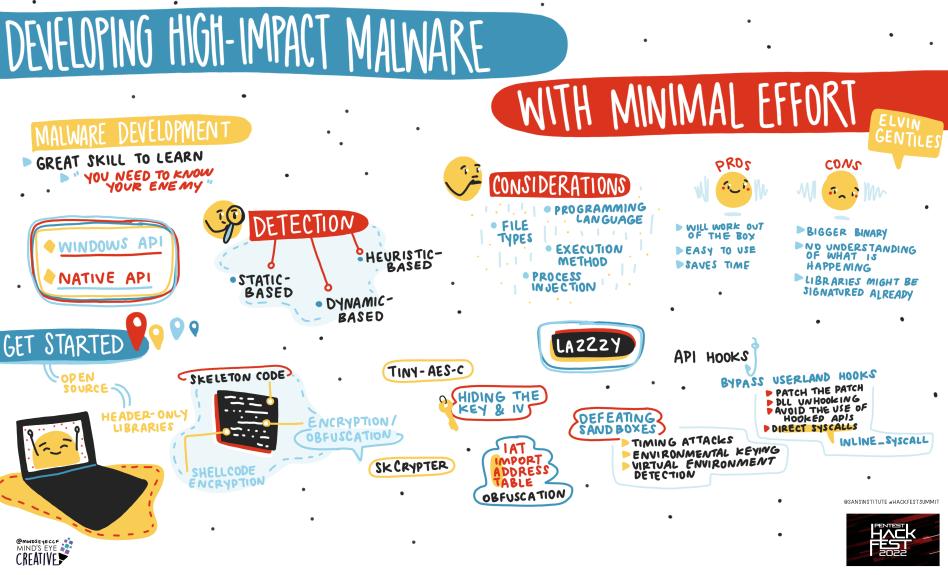 DEVELOPING HIGH-IMPACT MALWARE
WITH MINIMAL EFFORT
ELVIN
GENTILES
MALWARE DEVELOPMENT
GREAT SKILL TO LEARN
"YOU NEED TO KNOW
YOUR ENEMY"
WINDOWS API
NATIVE API
DETECTION
STATIC-
BASED
DYNAMIC-
BASED
HEURISTIC-
BASED
CONSIDERATIONS
PROGRAMMING
LANGUAGE
FILE
TYPES
EXECUTION
METHOD
PROCESS
INJECTION
PROS
WILL WORK OUT
OF THE BOX
EASY TO USE
SAVES TIME
CONS
BIGGER BINARY
NO UNDERSTANDING
OF WHAT IS
HAPPENING
LIBRARIES MIGHT BE
SIGNATURED ALREADY
GET STARTED
OPEN
SOURCE
HEADER-ONLY
LIBRARIES
SKELETON CODE
ENCRYPTION/
OBFUSCATION
SHELLCODE
ENCRYPTION
TINY-AES-C
HIDING THE
KEY & IV
SKCRYPTER
IAT
IMPORT
ADDRESS
TABLE
OBFUSCATION
LAZZZY
DEFEATING
SANDBOXES
TIMING ATTACKS
ENVIRONMENTAL KEYING
VIRTUAL ENVIRONMENT
DETECTION
API HOOKS
BYPASS USERLAND HOOKS
PATCH THE PATCH
DLL UNHOOKING
AVOID THE USE OF
HOOKED APIS
DIRECT SYSCALLS
INLINE_SYSCALL
@MINDSEYECCF
MIND'S EYE
CREATIVE
@SANSINSTITUTE #HACKFESTSUMMIT
PENTEST
HACK
FEST
2022